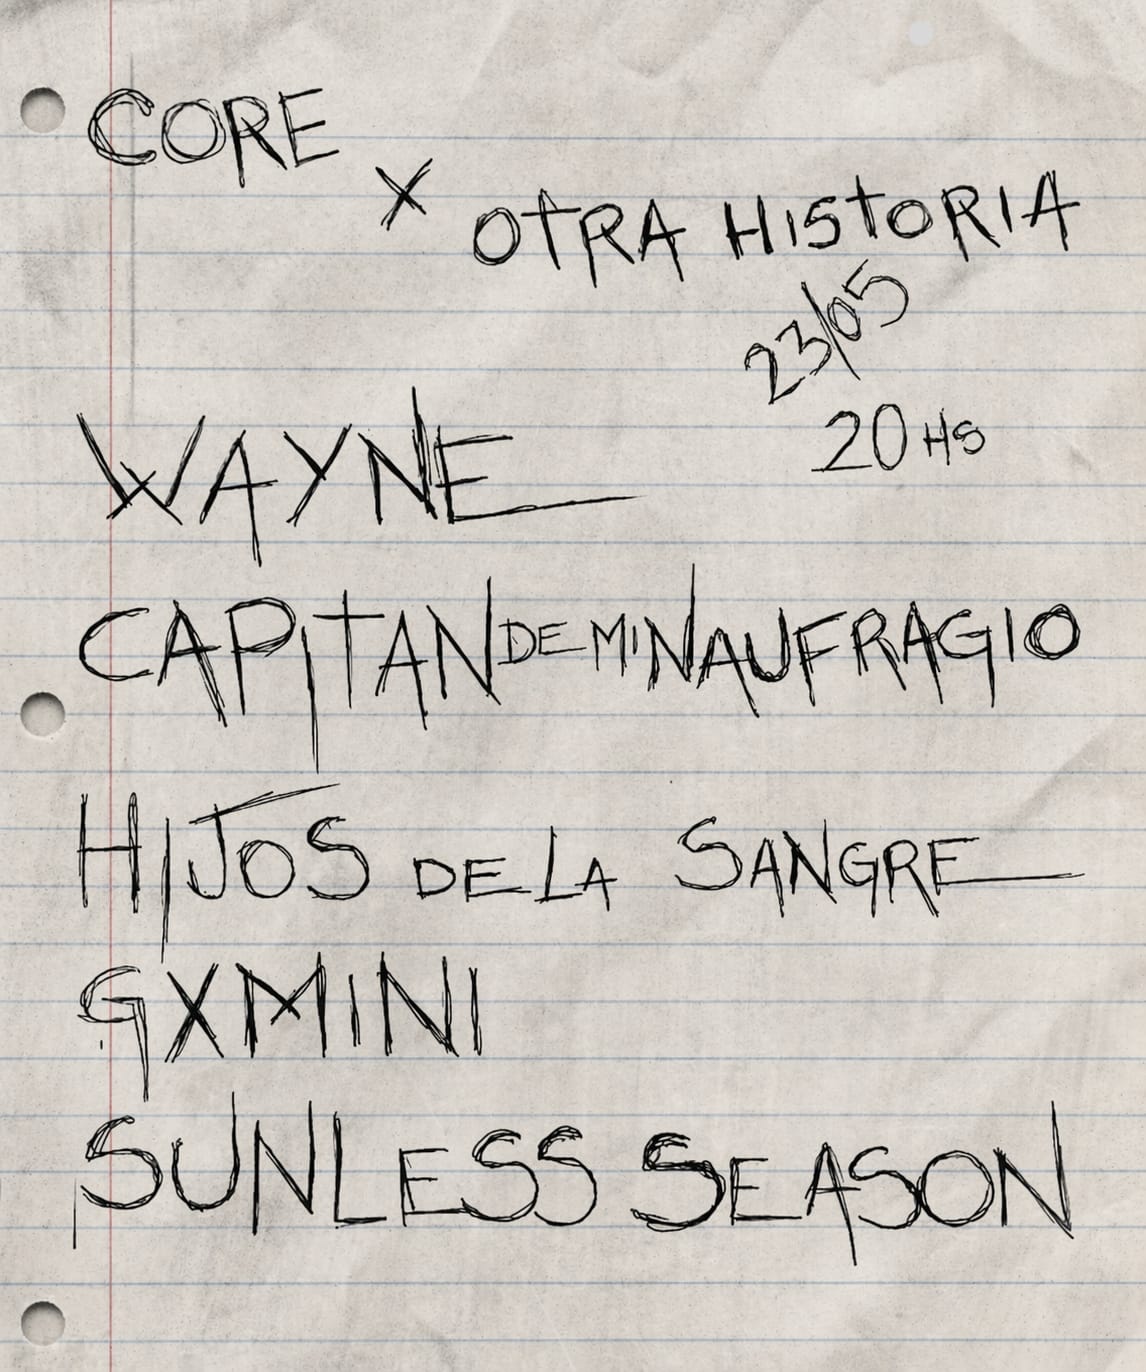 CORE
X
OTRA HISTORIA
23/05
20 HS
WAYNE
CAPITAN DE MI NAUFRAGIO
HIJOS DE LA SANGRE
GXMINI
SUNLESS SEASON